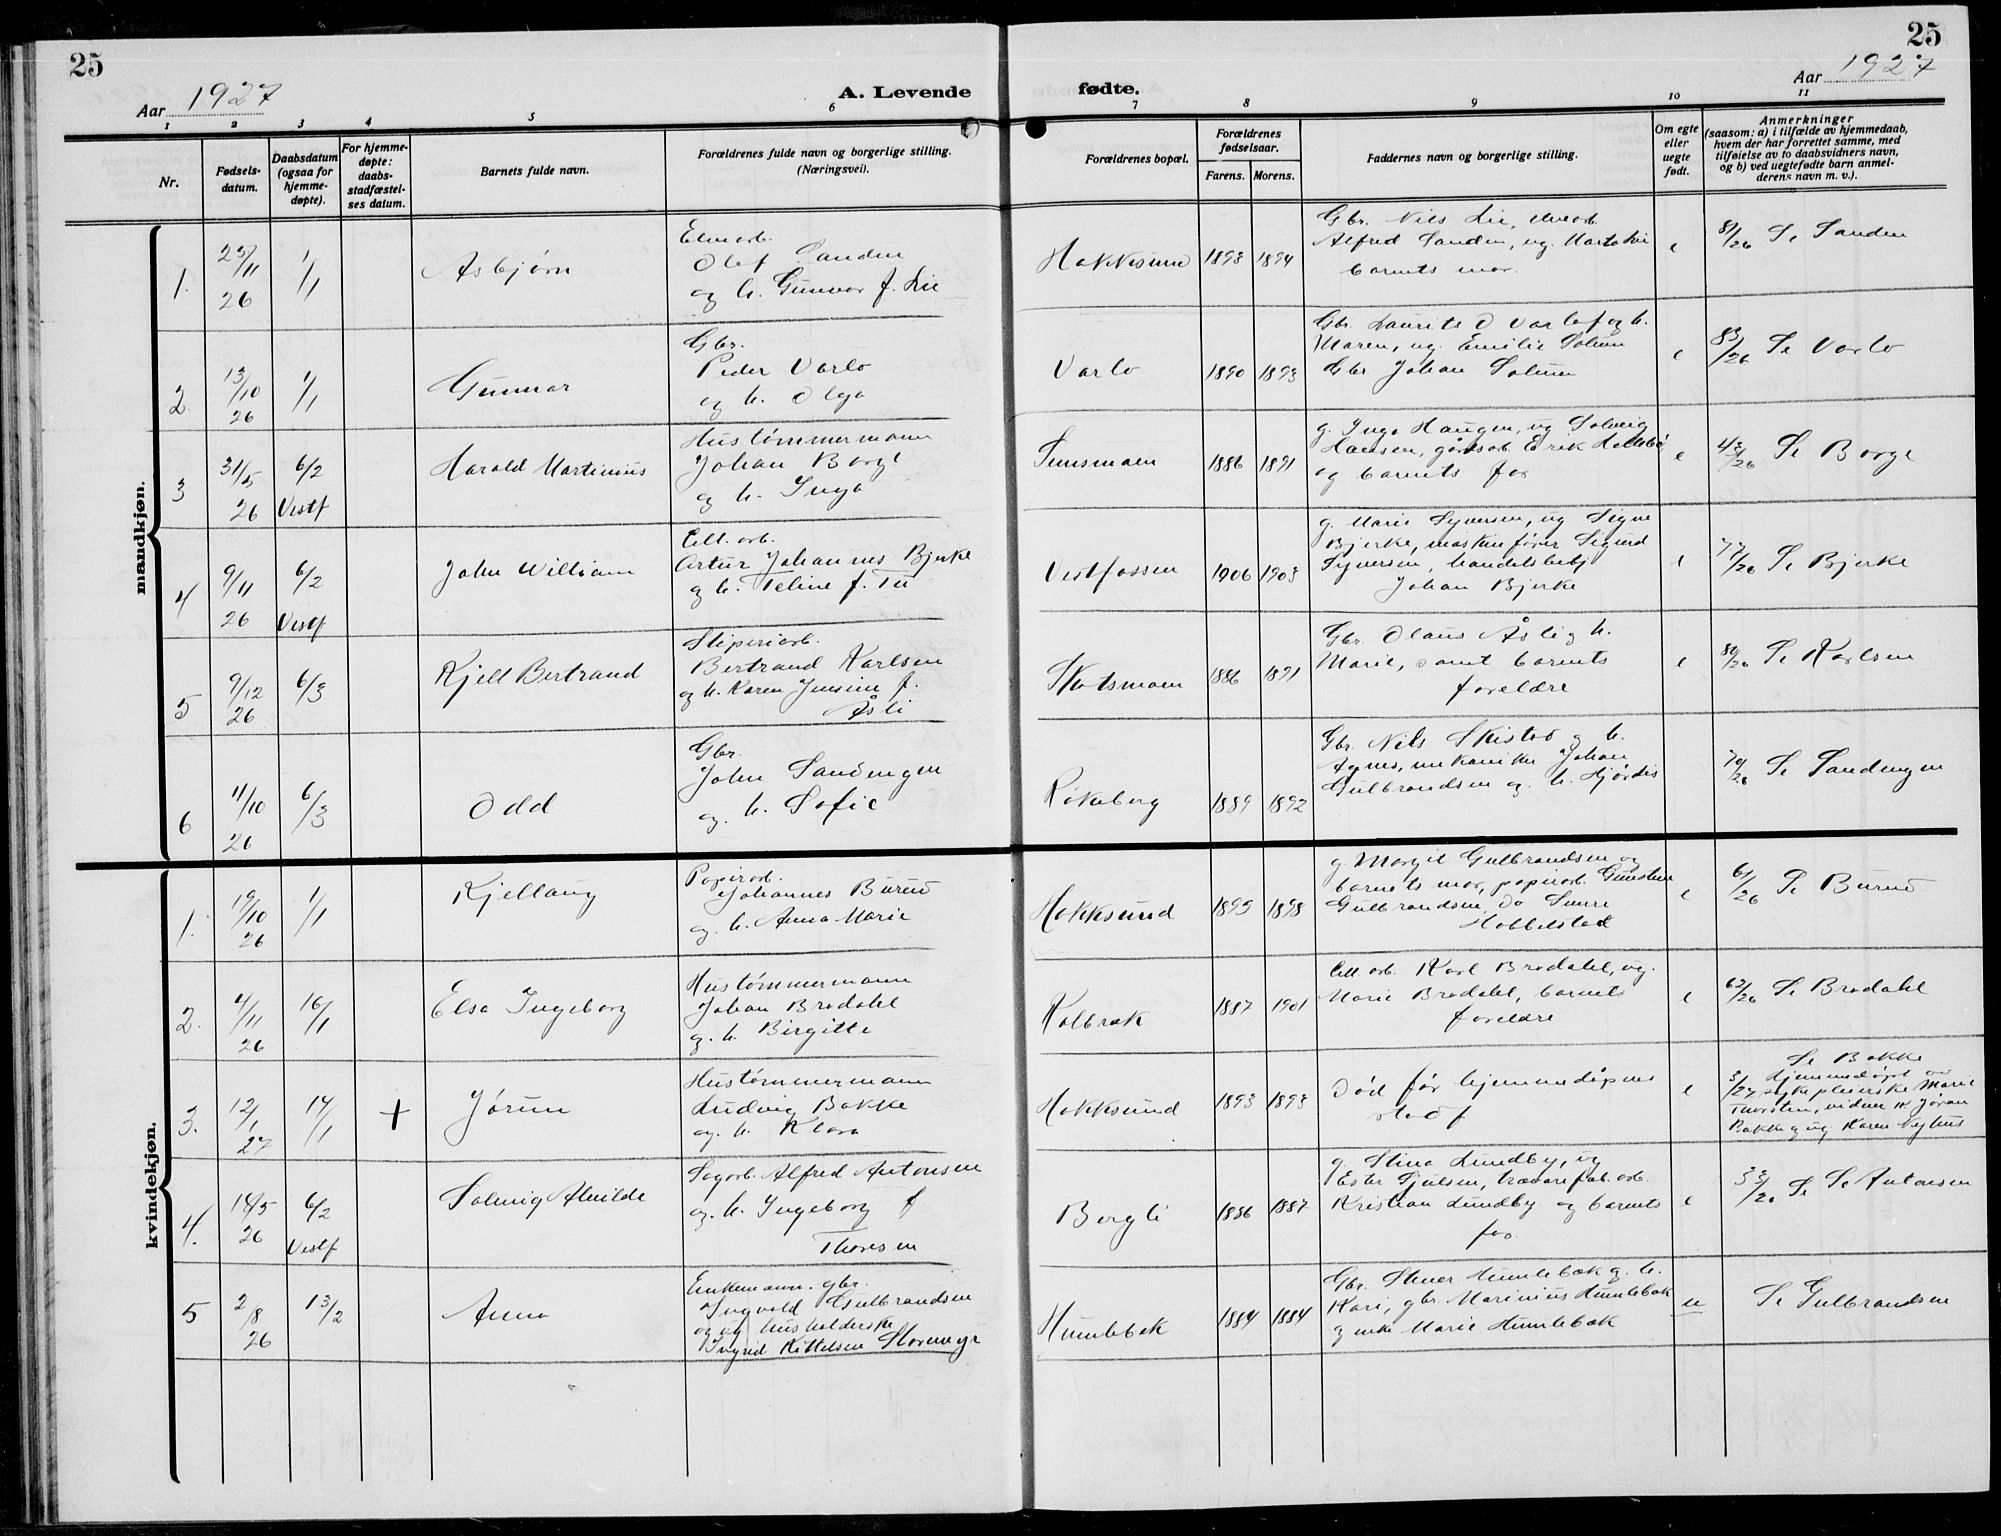 25
Aar 1927
A. Levende
1 2 3 4 5 6
Nr.
Fødsels-
datum.
Daabsdatum
(ogsaa for
hjemme-
døpte).
For hjemme-
døpte:
daabs-
stadfæstel-
ses datum.
Barnets fulde navn.
Forældrenes fulde navn og borgerlige stilling.
(Næringsvei).
25
Aar 1927
fødte.
7 8 9 10 11
Forældrenes bopæl.
Forældrenes
fødselsaar.
Farens. Morens.
Faddernes navn og borgerlige stilling.
Om egte
eller
uegte
født.
Anmerkninger
(saasom: a) i tilfælde av hjemmedaab,
hvem der har forrettet samme, med
tilføielse av to daabsvidners navn,
og b) ved uegtefødte barn anmel-
derens navn m. v.).
mandkjøn.
1.
11
26
1/1
Asbjørn
Olef Sanden
og h. Gunvor f. Lie
Hokksund 1893 1894
Gbr. Nils Lie,
Alfred Sanden, ug. Marta Lie
barnets mor.
e
81/26 Se Sanden
2.
13/10
26
1/1
Gunnar
Gbr.
Peder Varlo
og h. Olga
Varlo 1890 1893
Gbr. Laurits O Varlo og h.
Maren, ug. Emilie Solum
Gbr Johan Solum
e
83/26 Se Varlo
3
31/5
26
6/2
Vestf
Harald Martinius
Hustømmermann
Johan Borge
og h. Inga
1886 1891
g. Inga Haugen, ug Solveig
Hansen, gårdsarb Erik
og barnets far
e
43/26 Se Borge
4
9/11
26
6/2
Vestf
John William
Cell. arb.
Artur Johannes Bjerke
og h. Teline f.
Vestfossen 1906 1903
g. Marie Syversen, ug Signe
Bjerke, maskinfører Sigurd
Syversen, handelsbetj
Johan Bjerke
e
77/26 Se Bjerke
5
9/12
26
6/3
Kjell Bertrand
Sliperiarb.
Bertrand Karlsen
og h. Karen Jensine f.
Åsli
Skotsmoen 1886 1891
Gbr. Olaus Åsli g h.
Marie, samt barnets
foreldre
e
80/26 Se Karlsen
6
11/10
26
6/3
Odd
Gbr.
John Sandengen
og. h. Sofie
Røkeberg 1889 1892
Gbr. Nils Skistad g h.
Agnes, mekaniker Johan
Gulbrandsen og. h. Hjørdis
79/26 Se Sandengen
kvindekjøn.
1.
19/10
26
1/1
Kjellaug
Papirarb.
Johannes Burud
og. h. Anna Marie
Hokksund 1895 1898
g. Margit Gulbrandsen og
barnets mor, papirarb. Gunstein
Gulbrandsen, do Sverre
Hobbelstad
e
61/26 Se Burud
2.
4/11
26
16/1
Elsa Ingeborg
Hustømmermann
Johan Bredahl
og. h. Birgitte
Kolbræk 1887 1901
Cell arb. Karl Bredahl, ug.
Marie Bredahl, barnets
foreldre
e
62/26 Se Bredahl
3.
12/1
27
14/1
+
Jørun
Hustømmermann
Ludvig Bakke
og. h. Klara
Hokksund 1893 1893
Død før hjemmedåpens
stadf
e
3/27
Se Bakke
Hjemmedøpt av
sykepleierske Marie
Thorsten, vidner
Bakke g ug Karen Nyhus
4.
14/5
26
6/2
Vestf
Solveig Alvilde
Sagarb. Alfred Antonsen
og. h. Ingeborg f
Thoresen
Bergli 1886 1887
g. Stina Lundby, ug
Ester Sjulsen, trævarefab. arb.
Kristian Lundby og barnets
far.
e
33/26 Se Se Antonsen
5
2/8
26
13/2
Anna
Enkemann. gbr.
Ingvald Gulbrandsen
og ug husholderske
Ingrid Kittelsen Storemyr
Humlebæk 1884 1884
Gbr. Stener Humlebæk g. h.
Kari, gbr. Marinius Humlebæk
g enke Marie Humlebæk
u
Se Gulbrandsen